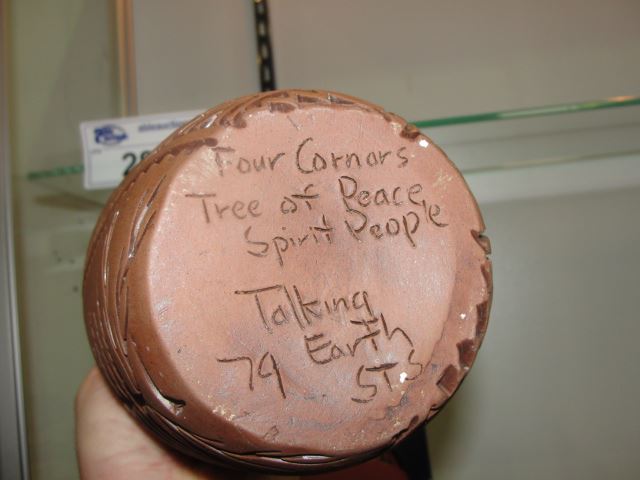 Four Cornors
Tree of Peace
Spirit People
Talking
Earth
79 STS